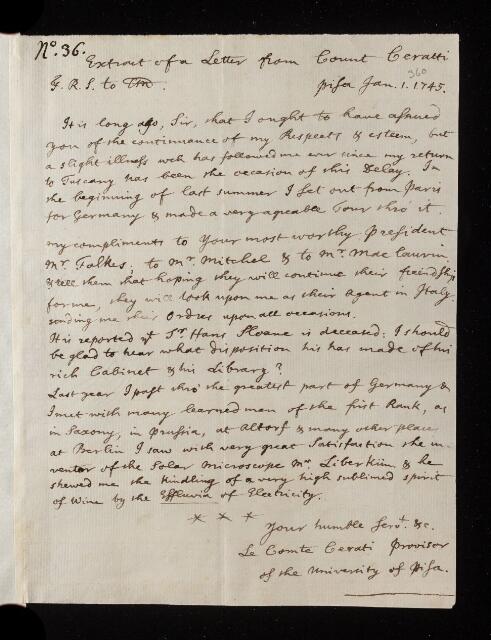 No. 36.
Extract of a Letter from Count Ceratti
G.R.S. to
360
Pisa Jan. 1. 1745.
It is long ago, Sir, that I ought to have assured
you of the continuance of my Respects & esteem, but
a slight illness wch has followed me ever since my return
to Tuscany has been the occasion of this Delay. In
the beginning of last summer I set out from Paris
for Germany & made a very agreable Tour thro' it.
my compliments to your most worthy President
Mr. Folkes, to Mr. Mitchel & to Mr. Mac laurin,
& tell them that hoping they will continue their friendship
for me, they will look upon me as their Agent in Italy,
sending me their Ordres upon all occasions.
It is reported yt Sr Hans Sloane is deceased: I should
be glad to hear what disposition his has made of his
rich Cabinet & his Library?
Last year I past thro' the greatest part of Germany &
I met with many learned men of the first Rank, as
in Saxony, in Prussia, at Altorf & many other place
at Berlin I saw with very great Satisfaction the in-
ventor of the Solar Microscope Mr. Liberkün & he
shewed me the Kindling of a very high sublimed spirit
of Wine by the Effluvia of Electricity.
* * *
Your humble Servt. &c.
Le Comte Cerati Provisor
of the University of Pisa.